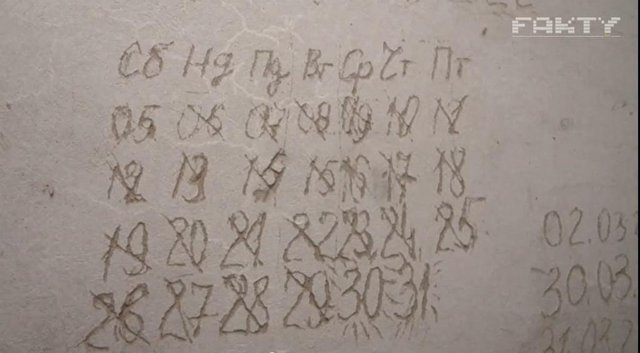 FAKTY
Сб Нд Пд Вт Ср Чт Пт
05 06 07 08 09 10 11
12 13 15 15 16 17 18
19 20 21 22 23 24 25
02.03
26 27 28 29 30 31
30.03